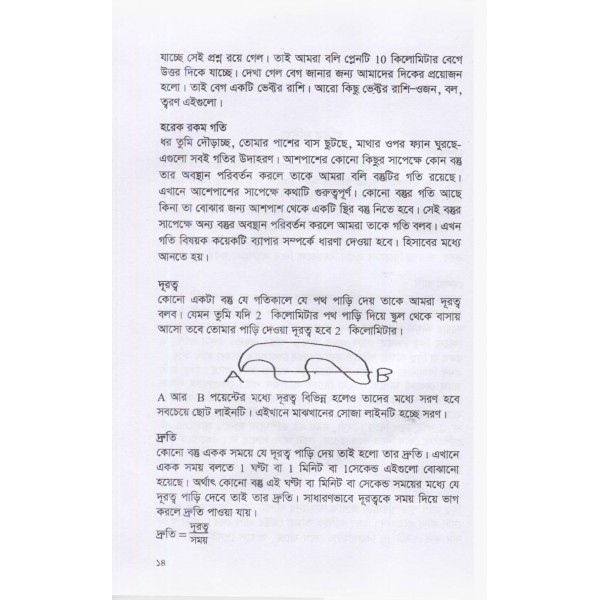 যাচ্ছে সেই প্রশ্ন রয়ে গেল। তাই আমরা বলি প্লেনটি 10 কিলোমিটার বেগে
উত্তর দিকে যাচ্ছে। দেখা গেল বেগ জানার জন্য আমাদের দিকের প্রয়োজন
হলো। তাই বেগ একটি ভেক্টর রাশি। আরো কিছু ভেক্টর রাশি-ওজন, বল,
ত্বরণ এইগুলো।
হরেক রকম গতি
ধর তুমি দৌড়াচ্ছ, তোমার পাশের বাস ছুটছে, মাথার ওপর ফ্যান ঘুরছে-
এগুলো সবই গতির উদাহরণ। আশপাশের কোনো কিছুর সাপেক্ষে কোন বস্তু
তার অবস্থান পরিবর্তন করলে তাকে আমরা বলি বস্তুটির গতি রয়েছে।
এখানে আশেপাশের সাপেক্ষে কথাটি গুরুত্বপূর্ণ। কোনো বস্তুর গতি আছে
কিনা তা বোঝার জন্য আশপাশ থেকে একটি স্থির বস্তু নিতে হবে। সেই বস্তুর
সাপেক্ষে অন্য বস্তুর অবস্থান পরিবর্তন করলে আমরা তাকে গতি বলব। এখন
গতি বিষয়ক কয়েকটি ব্যাপার সম্পর্কে ধারণা দেওয়া হবে। হিসাবের মধ্যে
আনতে হয়।
দূরত্ব
কোনো একটা বস্তু যে গতিকালে যে পথ পাড়ি দেয় তাকে আমরা দূরত্ব
বলব। যেমন তুমি যদি 2 কিলোমিটার পথ পাড়ি দিয়ে স্কুল থেকে বাসায়
আসো তবে তোমার পাড়ি দেওয়া দূরত্ব হবে 2 কিলোমিটার।
A B
A আর B পয়েন্টের মধ্যে দূরত্ব বিভিন্ন হলেও তাদের মধ্যে সরণ হবে
সবচেয়ে ছোট লাইনটি। এইখানে মাঝখানের সোজা লাইনটি হচ্ছে সরণ।
দ্রুতি
কোনো বস্তু একক সময়ে যে দূরত্ব পাড়ি দেয় তাই হলো তার দ্রুতি। এখানে
একক সময় বলতে 1 ঘণ্টা বা 1 মিনিট বা 1সেকেন্ড এইগুলো বোঝানো
হয়েছে। অর্থাৎ কোনো বস্তু এই ঘণ্টা বা মিনিট বা সেকেন্ড সময়ের মধ্যে যে
দূরত্ব পাড়ি দেবে তাই তার দ্রুতি। সাধারণভাবে দূরত্বকে সময় দিয়ে ভাগ
করলে দ্রুতি পাওয়া যায়।
দ্রুতি = দূরত্ব/সময়
১৪